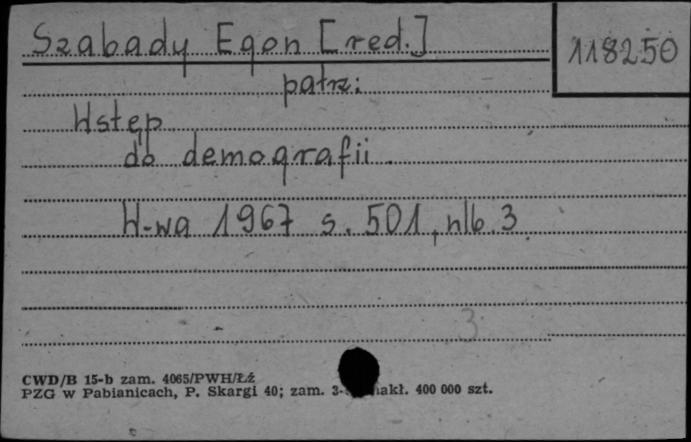 Szabady Egon [red.]
118250
patrz:
Wstęp
do demografii.
W-wa 1967 s. 501, nlb. 3.
3
CWD/B 15-b zam. 4065/PWH/Łź
PZG w Pabianicach, P. Skargi 40; zam. nakł. 400 000 szt.